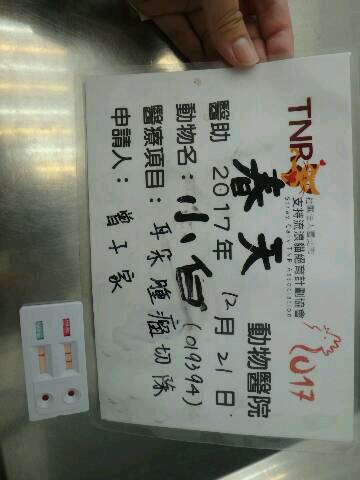 TNR
社團法人台北市
支持流浪貓絕育計劃協會
Stray Cats TNR Association
2017
春天 動物醫院
醫助 2017年 12月 21日
動物名：小白(019394)
醫療項目：耳朵腫瘤切除
申請人：曾子家